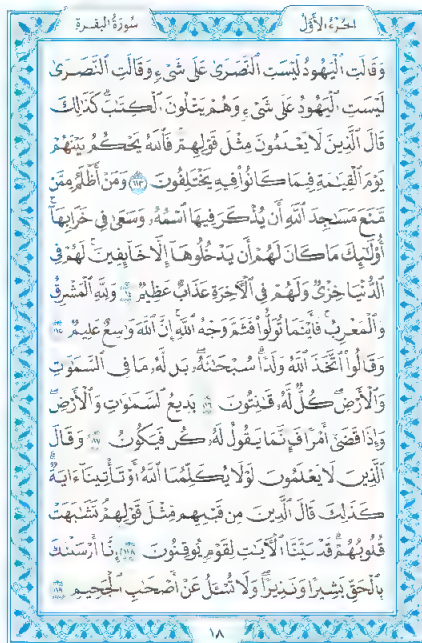 الجزء الأول
سورة البقرة
وَقَالَتِ الْيَهُودُ لَيْسَتِ النَّصَٰرَىٰ عَلَىٰ شَىْءٍ وَقَالَتِ النَّصَٰرَىٰ
لَيْسَتِ الْيَهُودُ عَلَىٰ شَىْءٍ وَهُمْ يَتْلُونَ الْكِتَٰبَ ۗ كَذَٰلِكَ
قَالَ الَّذِينَ لَا يَعْلَمُونَ مِثْلَ قَوْلِهِمْ ۚ فَاللَّهُ يَحْكُمُ بَيْنَهُمْ
يَوْمَ الْقِيَٰمَةِ فِيمَا كَانُوا فِيهِ يَخْتَلِفُونَ ١١٣ وَمَنْ أَظْلَمُ مِمَّن
مَّنَعَ مَسَٰجِدَ اللَّهِ أَن يُذْكَرَ فِيهَا اسْمُهُۥ وَسَعَىٰ فِى خَرَابِهَا ۚ
أُو۟لَٰٓئِكَ مَا كَانَ لَهُمْ أَن يَدْخُلُوهَآ إِلَّا خَآئِفِينَ ۚ لَهُمْ فِى
الدُّنْيَا خِزْىٌ وَلَهُمْ فِى الْأَخِرَةِ عَذَابٌ عَظِيمٌ ١١٤ وَلِلَّهِ الْمَشْرِقُ
وَالْمَغْرِبُ ۚ فَأَيْنَمَا تُوَلُّوا فَثَمَّ وَجْهُ اللَّهِ ۚ إِنَّ اللَّهَ وَٰسِعٌ عَلِيمٌ ١١٥
وَقَالُوا اتَّخَذَ اللَّهُ وَلَدًا ۗ سُبْحَٰنَهُۥ ۖ بَل لَّهُۥ مَا فِى السَّمَٰوَٰتِ
وَالْأَرْضِ ۖ كُلٌّ لَّهُۥ قَٰنِتُونَ ١١٦ بَدِيعُ السَّمَٰوَٰتِ وَالْأَرْضِ ۖ
وَإِذَا قَضَىٰٓ أَمْرًا فَإِنَّمَا يَقُولُ لَهُۥ كُن فَيَكُونُ ١١٧ وَقَالَ
الَّذِينَ لَا يَعْلَمُونَ لَوْلَا يُكَلِّمُنَا اللَّهُ أَوْ تَأْتِينَآ ءَايَةٌ ۗ
كَذَٰلِكَ قَالَ الَّذِينَ مِن قَبْلِهِم مِّثْلَ قَوْلِهِمْ ۘ تَشَٰبَهَتْ
قُلُوبُهُمْ ۗ قَدْ بَيَّنَّا الْأَيَٰتِ لِقَوْمٍ يُوقِنُونَ ١١٨ إِنَّآ أَرْسَلْنَٰكَ
بِالْحَقِّ بَشِيرًا وَنَذِيرًا ۖ وَلَا تُسْـَٔلُ عَنْ أَصْحَٰبِ الْجَحِيمِ ١١٩
١٨